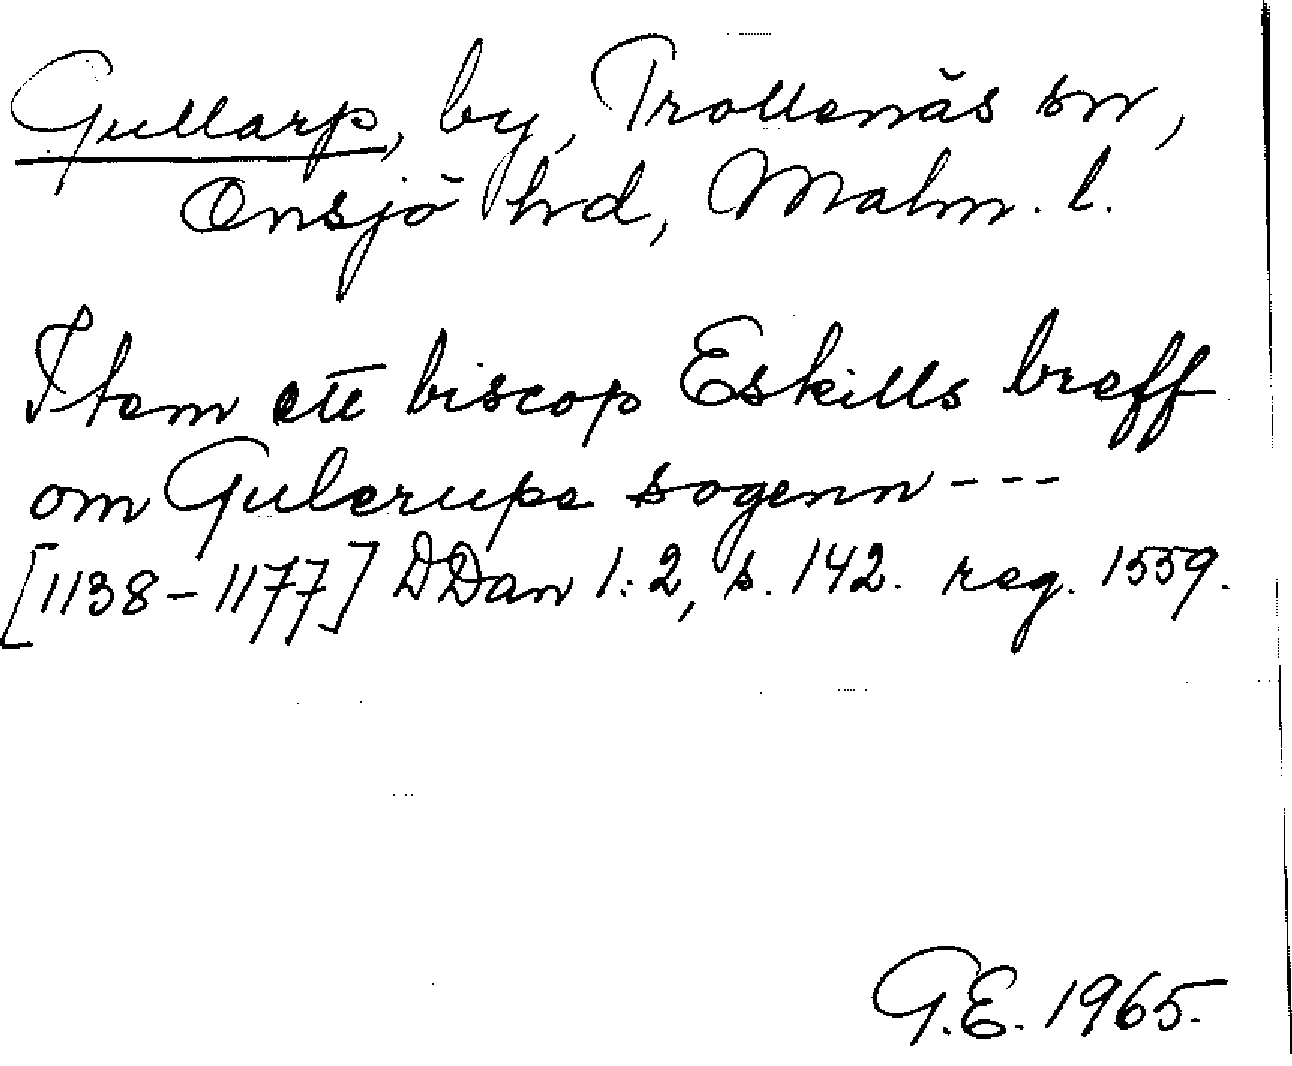 Gullarp, by, Trollenäs sn,
Onsjö hd, Malm. l.
Item ett biscop Eskills breff
om Gulerupe sogenn - - -
[1138-1177] DDan 1:2, s. 142. reg. 1559.
G.E. 1965.